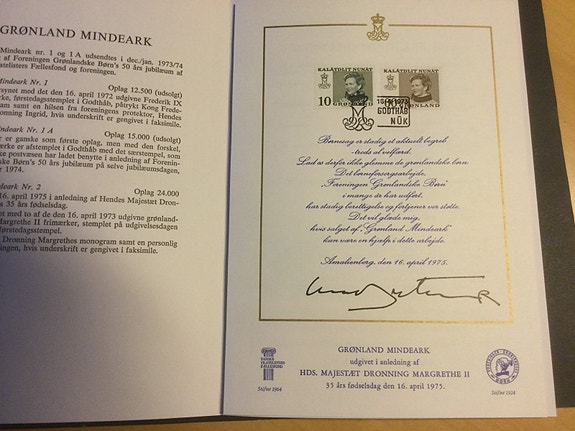 GRØNLAND MINDEARK
Mindeark nr. 1 og I A udsendtes i dec./jan. 1973/74
af Foreningen Grønlandske Børn's 50 års jubilæum af
atelisters Fællesfond og foreningen.
Mindeark Nr. 1
Oplag 12.500 (udsolgt)
synet med de den 16. april 1972 udgivne Frederik IX
rker, førstedagsstemplet i Godthåb, påtrykt Kong Frede-
ram samt en hilsen fra foreningens protektor, Hendes
nning Ingrid, hvis underskrift er gengivet i faksimile.
deark Nr. 1 A
Oplag 15.000 (udsolgt)
er ganske som første oplag, men med den forskel,
rke er afstemplet i Godthåb med det særstempel, som
e postvæsen har ladet benytte i anledning af Forenin-
dske Børns 50 års jubilæum på selve jubilæumsdagen,
r 1974.
deark Nr. 2
Oplag 24.000
16. april 1975 i anledning af Hendes Majestæt Dron-
s 35 års fødselsdag.
et med to af de den 16. april 1973 udgivne grønland-
Margrethe II frimærker, stemplet på udgivelsesdagen
førstedagsstempel.
Dronning Margrethes monogram samt en personlig
ningen, hvis underskrift er gengivet i faksimile.
KALÂTDLIT NUNÂT
10
GRØNLAND
KALÂTDLIT NUNÂT
GRØNLAND
GODTHÅB
NÛK
Børnesag er stadig et aktuelt begreb
- trods al velfærd.
Lad os derfor ikke glemme de grønlandske børn.
Det børneforsorgsarbejde,
„Foreningen Grønlandske Børn"
i mange år har udført,
har stadig berettigelse og fortjener vor støtte.
Det vil glæde mig,
hvis salget af „Grønland Mindeark"
kan være en hjælp i dette arbejde.
Amalienborg, den 16. april 1975.
GRØNLAND MINDEARK
udgivet i anledning af
HDS. MAJESTÆT DRONNING MARGRETHE II
35 års fødselsdag den 16. april 1975.
Stiftet 1964
Stiftet 1924